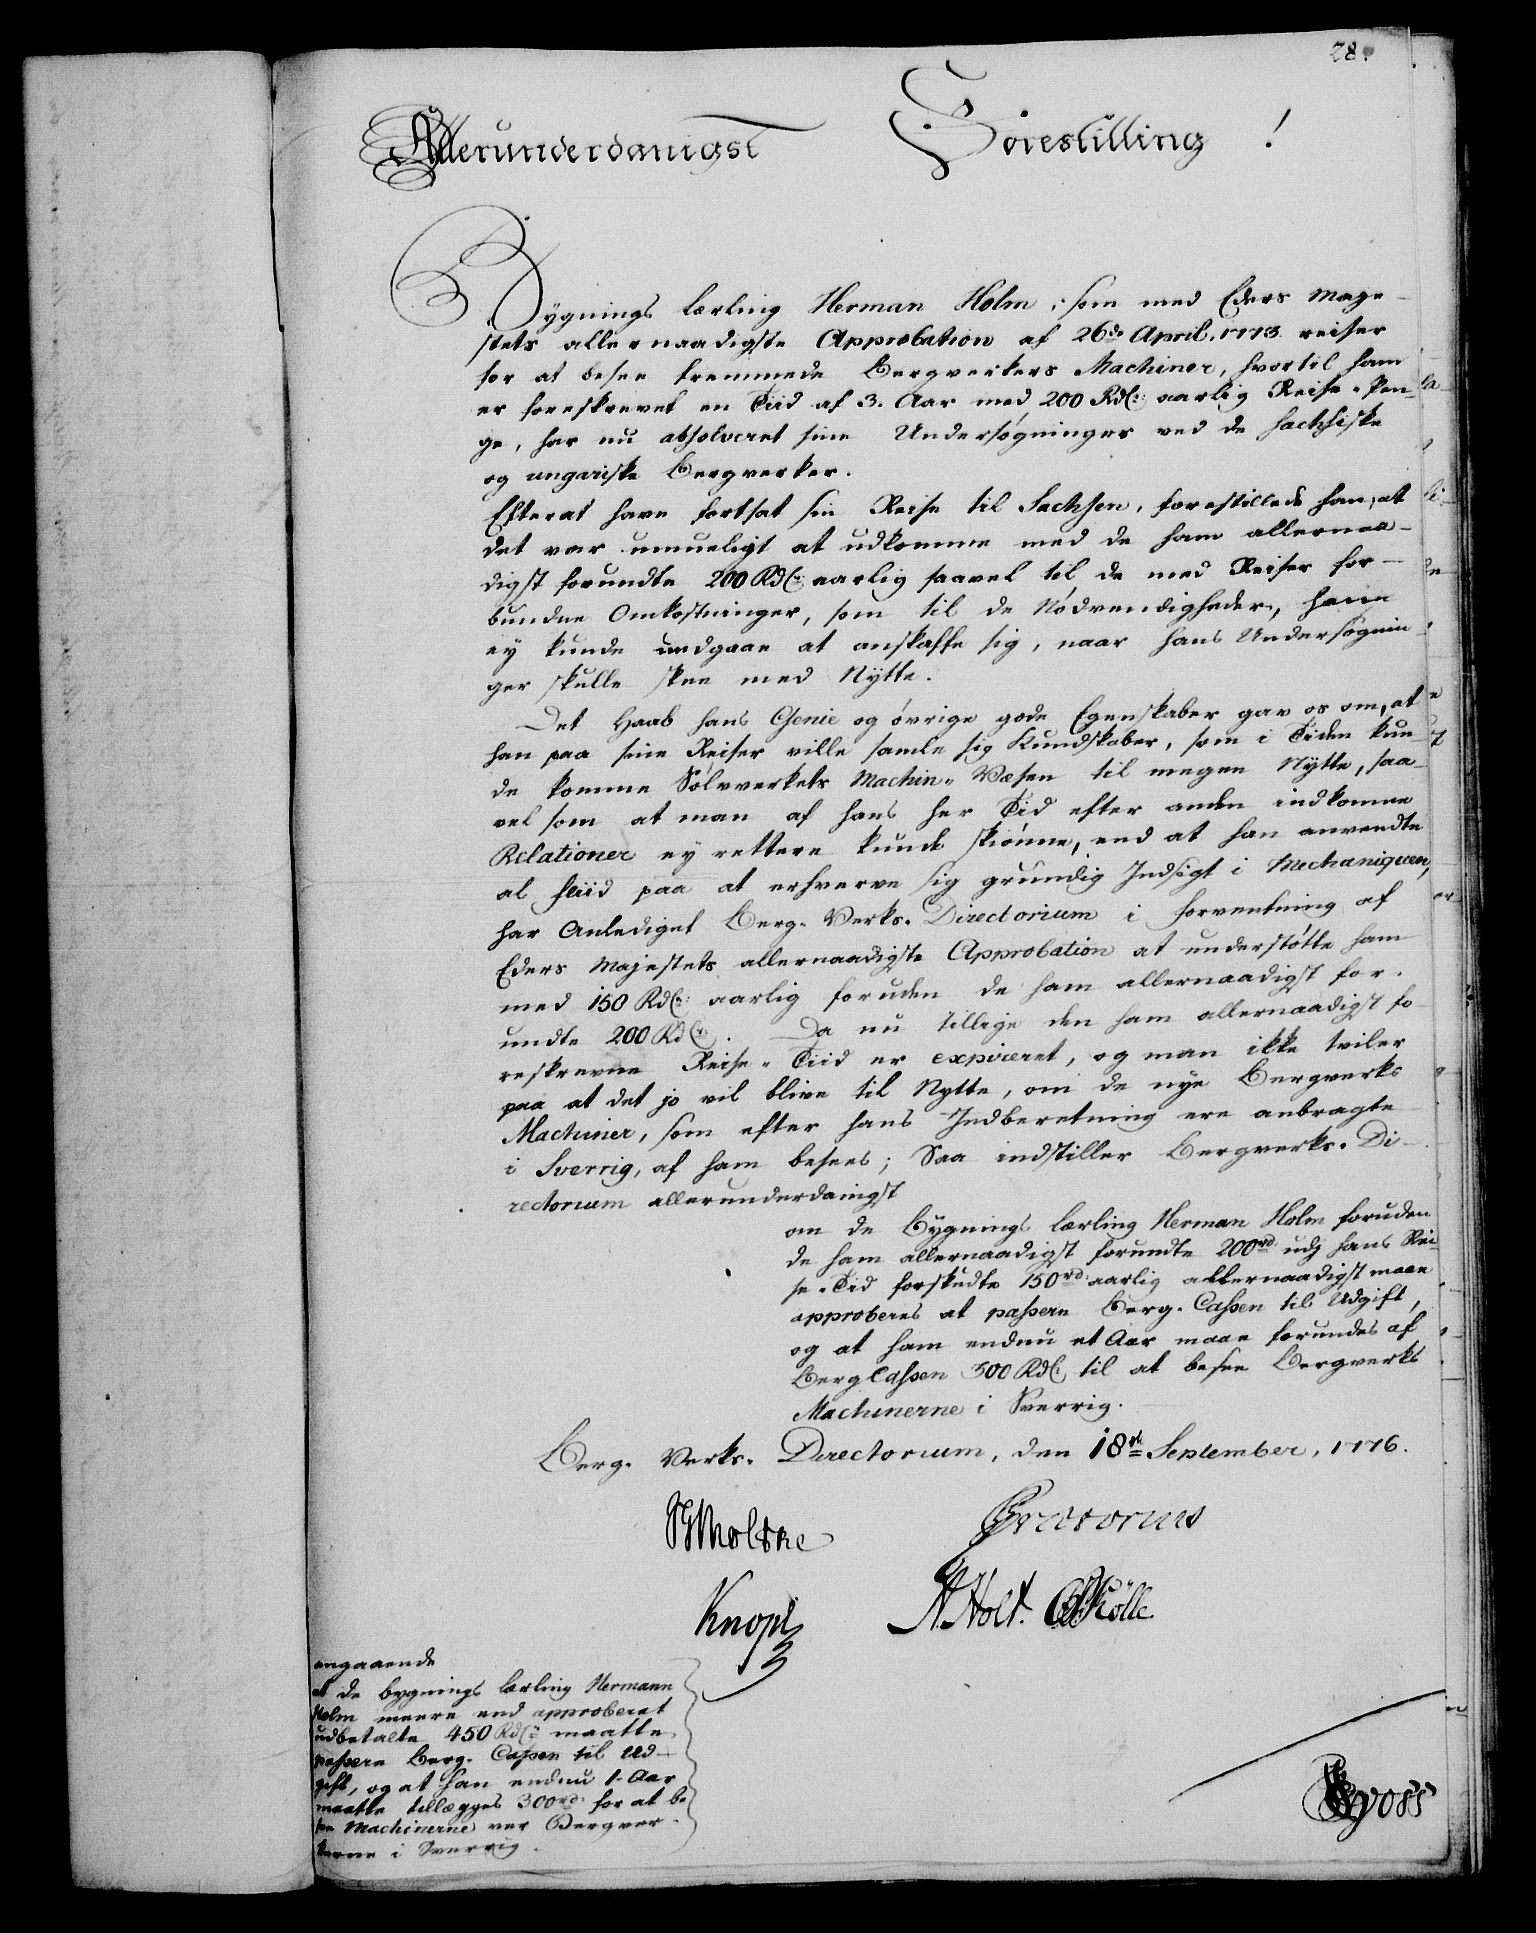 28.
Allerunderdanigst Forestilling!
Bygnings lærling Herman Holm, som med Eders Maje-
stets allernaadigste Approbation af 26de April. 1773 reiser
for at besee fremmede Bergverkers Machiner, hvortil ham
er foreskrevet en Tiid af 3. Aar med 200 Rdl: aarlig Reise-Pen-
ge, har nu absolveret sine Undersøgninger ved de sachsiske
og ungariske Bergverker.
Efterat have fortsat sin Reise til Sachsen, forestillede han, at
det var umueligt at udkomme med de ham allernaa-
digst forundte 200 Rdl: aarlig saavel til de med Reiser for-
bundne Omkostninger, som til de Nødvendigheder, hane
ey kunde undgaae at anskaffe sig, naar hans Undersøgnin
ger skulle skee med Nytte.
Det Haab hans Genie og øvrige gode Egenskaber gav os om, at
han paa sine Reiser ville samle sig Kundskaber, som i Tiden kun-
de komme Sølvverkets Machin-Væsen til megen Nytte, saa-
vel som at man af hans her Tid efter anden indkomne
Relationer ey rettere kunde skiønne, end at han anvendte
al fliid paa at erhverve sig grundig Indsigt i Mechaniqven,
har Anlediget Berg-Verks-Directorium i forventning af
Eders Majestets allernaadigste Approbation at understøtte ham
med 150 Rdl: aarlig foruden de ham allernaadigst for-
undte 200 Rdl:. Da nu tillige den ham allernaadigst fo-
reskrevne Reise-Tiid er expireret, og man ikke tviler
paa at det jo vil blive til Nytte, om de nye Bergverks
Machiner, som efter hans Indberetning ere anbragte
i Sverrig, af ham besees; Saa indstiller Bergverks-Di-
rectorium allerunderdanigst
om de bygnings lærling Herman Holm foruden
de ham allernaadigst forundte 200rd: udj hans Rei-
se-Tid forskudte 150rd: aarlig allernaadigst maae
approberes at passere Berg-Cassen til Udgift,
og at ham endnu et Aar maae forundes af
BergCassen 300 Rdl: til at besee Bergverks
Machinerne i Sverrig.
Berg-Verks-Directorium, den 18de September, 1776.
Moltke Prætorius
Knoph A. Holt.
angaaende
at de bygnings lærling Hermann
Holm meere end approberet
udbetalte 450 Rdl: maatte
passere Berg-Cassen til Ud-
gift, og at han endnu 1. Aar
maatte tillægges 300rd: for at be
see Machinerne ver Bergver-
kerne i Sverrig.